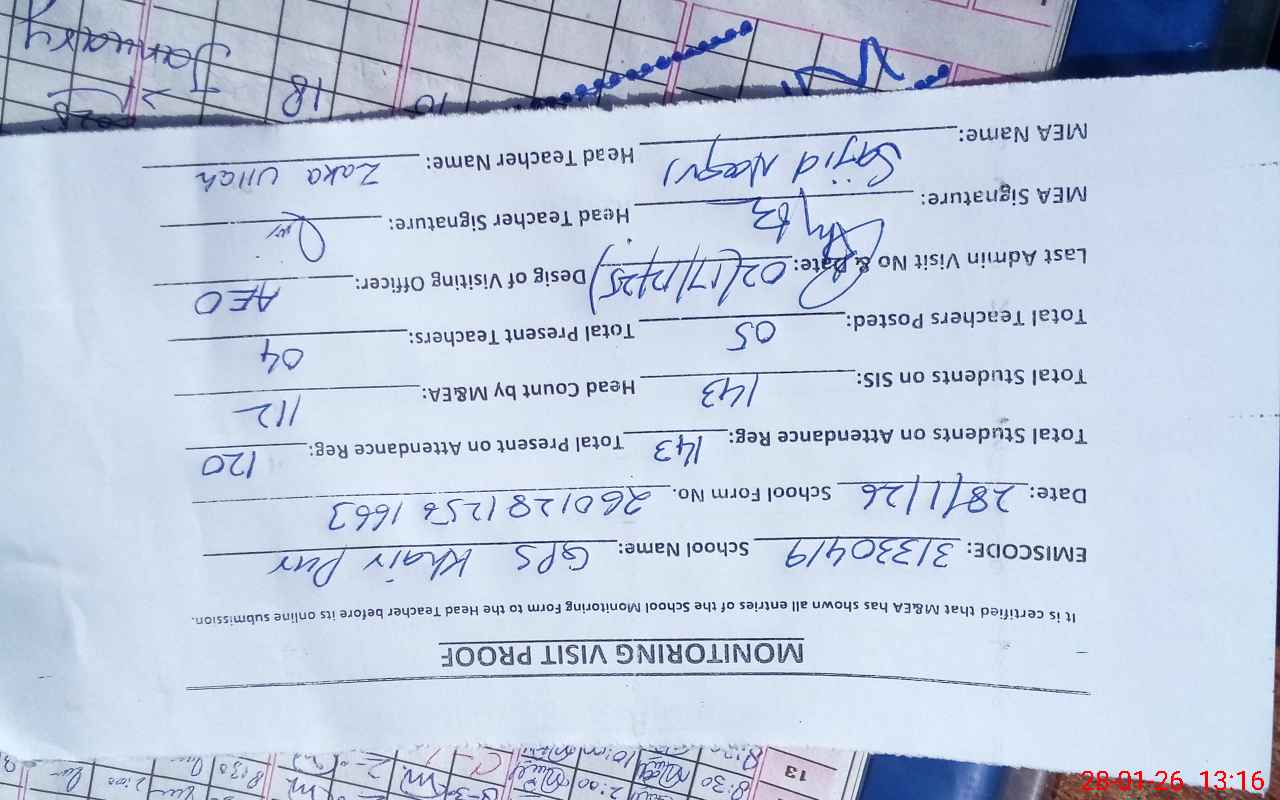 MONITORING VISIT PROOF
It is certified that M&EA has shown all entries of the School Monitoring Form to the Head Teacher before its online submission.
EMISCODE: 31330419 School Name: GPS Khair Pur
Date: 28/1/26 School Form No. 26012812561663
Total Students on Attendance Reg: 143 Total Present on Attendance Reg: 120
Total Students on SIS: 143 Head Count by M&EA: 112
Total Teachers Posted: 05 Total Present Teachers: 04
Last Admin Visit No & Date: 02(17/12/25) Desig of Visiting Officer: AEO
MEA Signature: Head Teacher Signature:
MEA Name: Sajid Naqvi Head Teacher Name: Zaka Ullah
January
18
10
13
8:30
2:00
8:30
2:00
28-01-26 13:16